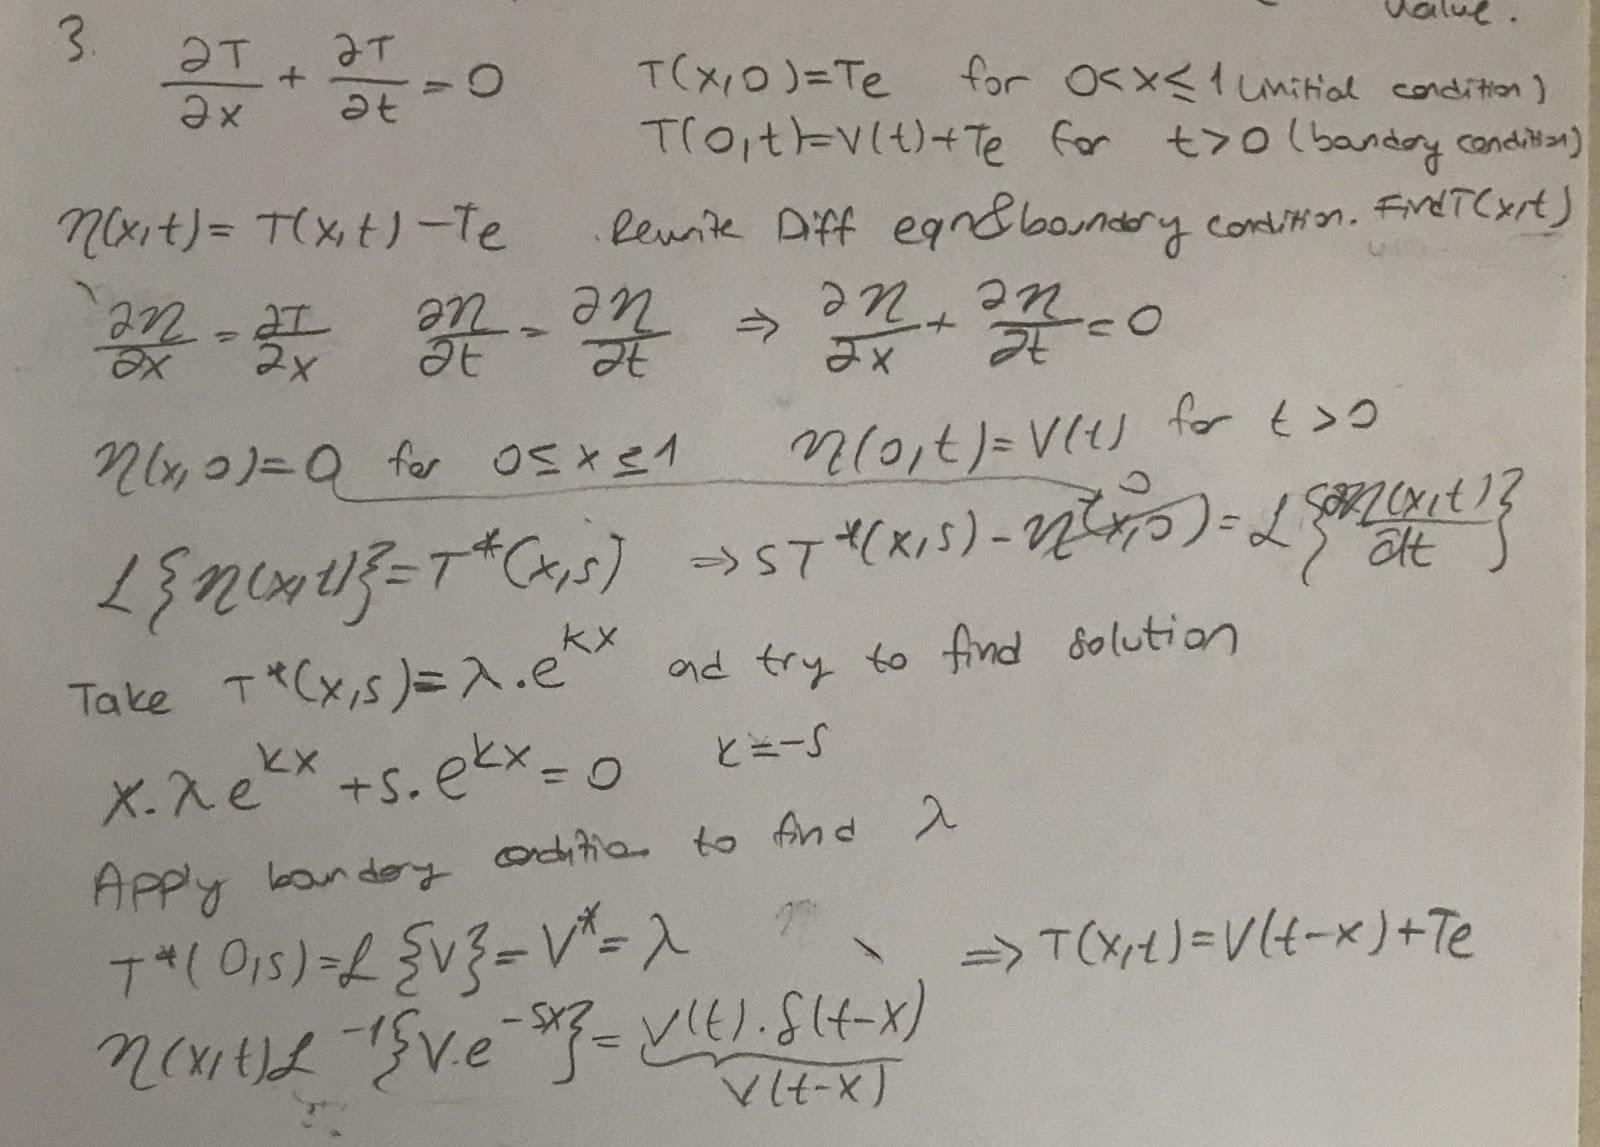 value.
3. ∂T/∂x + ∂T/∂t = 0 T(x,0)=Te for 0<x≤1 (initial condition)
T(0,t)=V(t)+Te for t>0 (bandory condition)
η(x,t) = T(x,t) - Te Rewrite Diff eqn&boundory condition. Find T(x,t)
∂η/∂x = ∂T/∂x ∂η/∂t = ∂η/∂t ⇒ ∂η/∂x + ∂η/∂t = 0
η(x,0)=0 for 0≤x≤1 η(0,t)=V(t) for t>0
L{η(x,t)}=T*(x,s) ⇒ sT*(x,s) - η(x,0) 0 = L{∂η(x,t)/dt}
Take T*(x,s)=λ.e^kx ad try to find solution
x.λe^kx + s.e^kx = 0 k=-s
Apply bandory condition to find λ
T*(0,s)=L{V}=V*=λ ⇒T(x,t)=V(t-x)+Te
η(x,t)L^-1{V.e^-sx}=V(t).δ(t-x)
V(t-x)